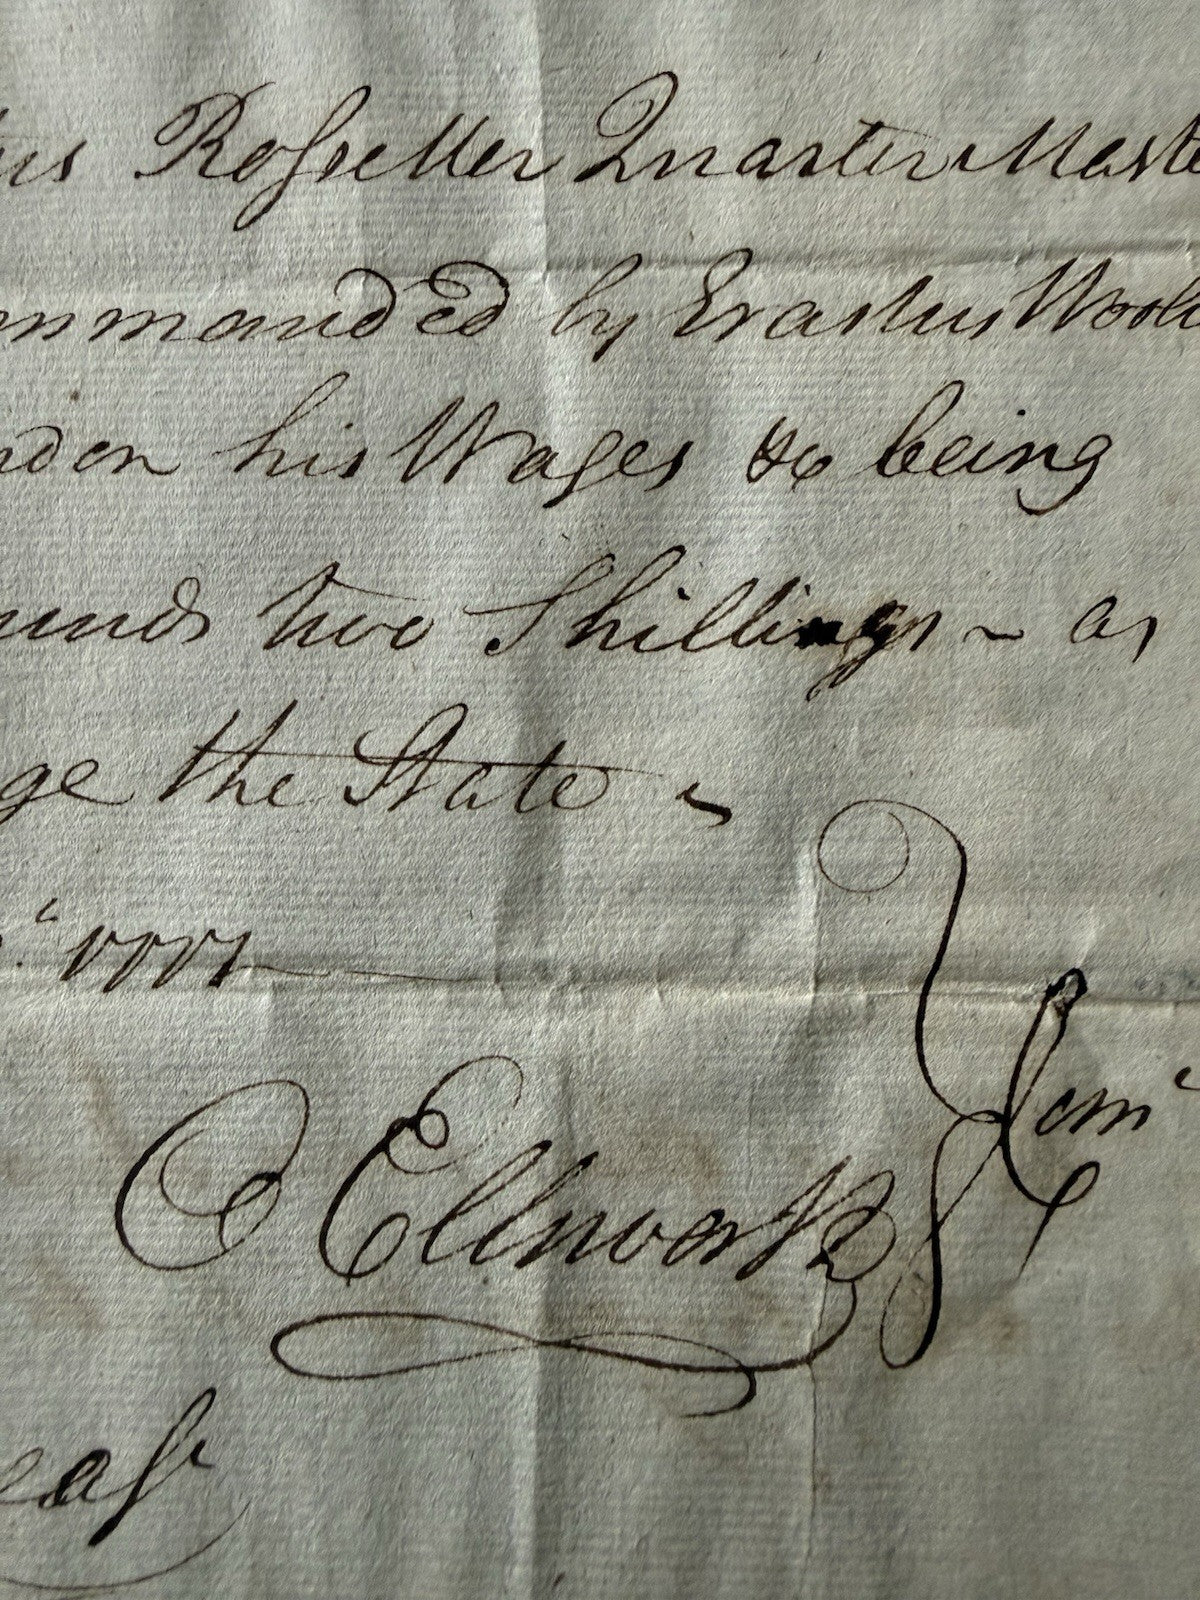 us Rosseter Quarter Maste
ommanded by Erastus Wolc
nder his Wages &c being
unds two Shillings ~ as
ge the State ~
O Ellsworth } Com
eas